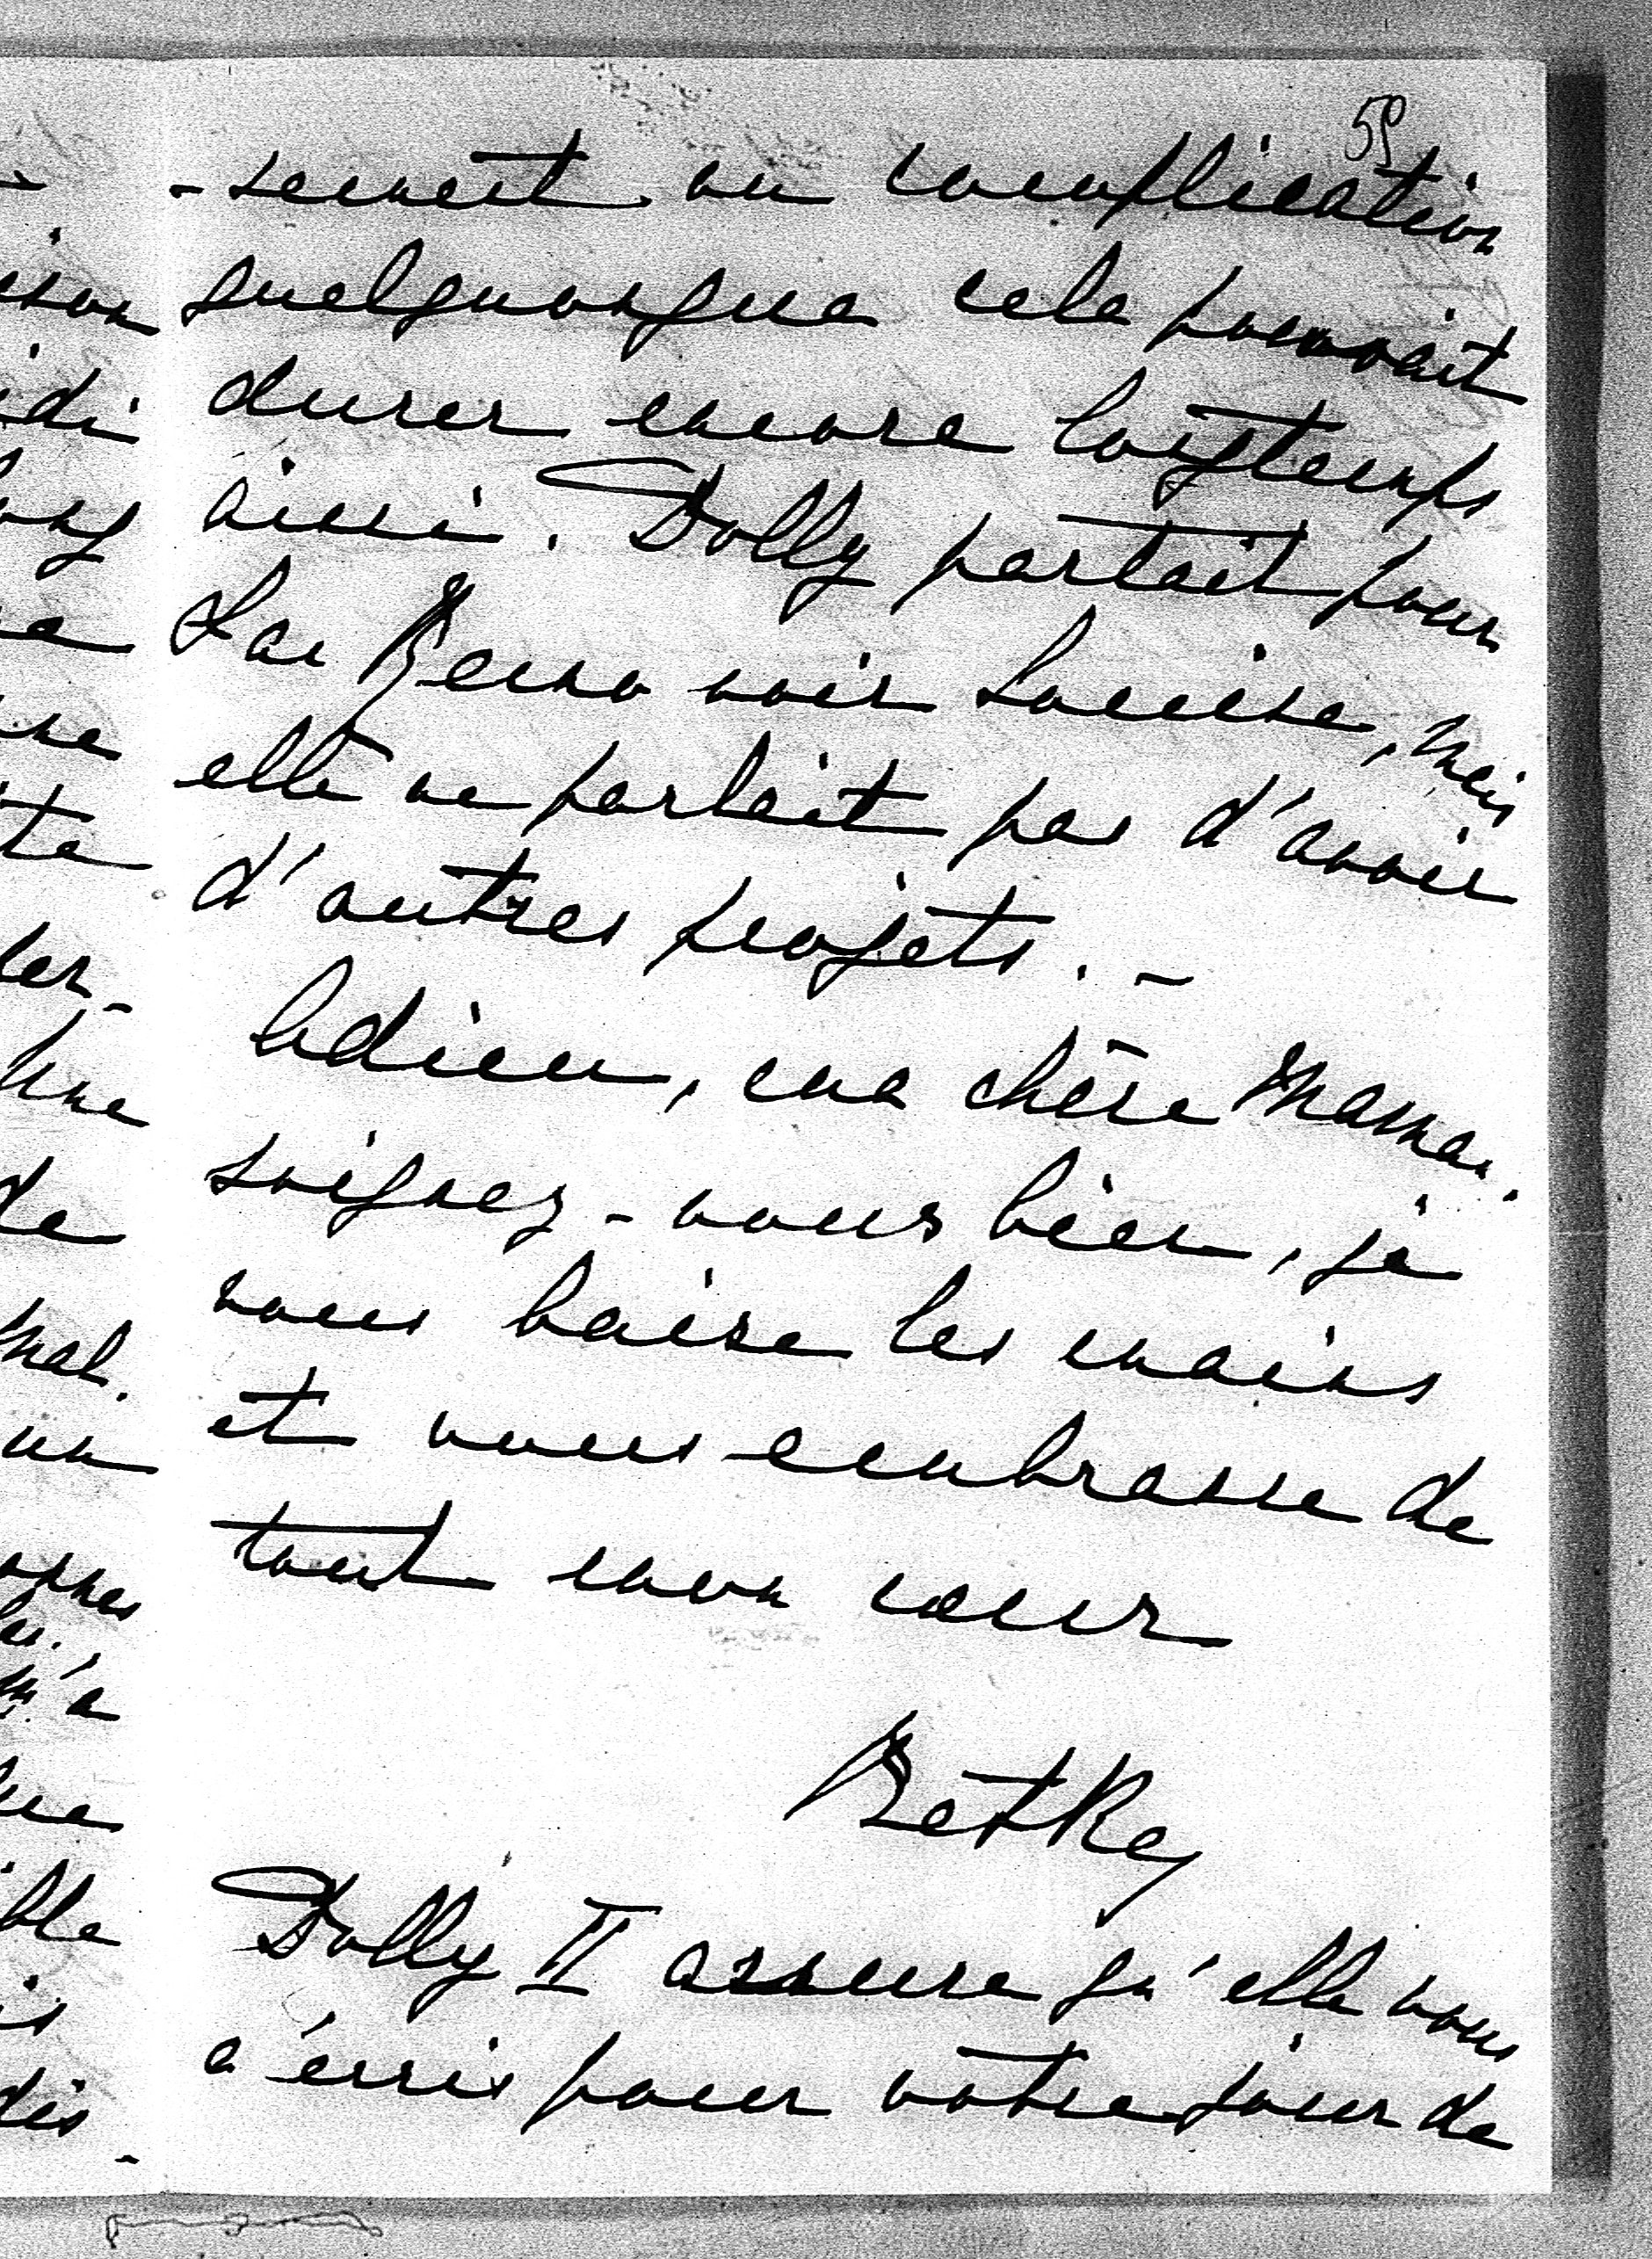 59
- sement ou complication
quelquonque cela pourrait
durer encore longtemps
ainsi. Dolly partait pour
San Remo voir Louise, mais
elle ne parlait pas d'avoir
d'autres projets. -
Adieu, ma chère Maman.
soignez-vous bien, je
vous baise les mains
et vous embrasse de
tout mon cœur
Betky
Dolly II assure qu'elle vous
a écris pour votre jour de